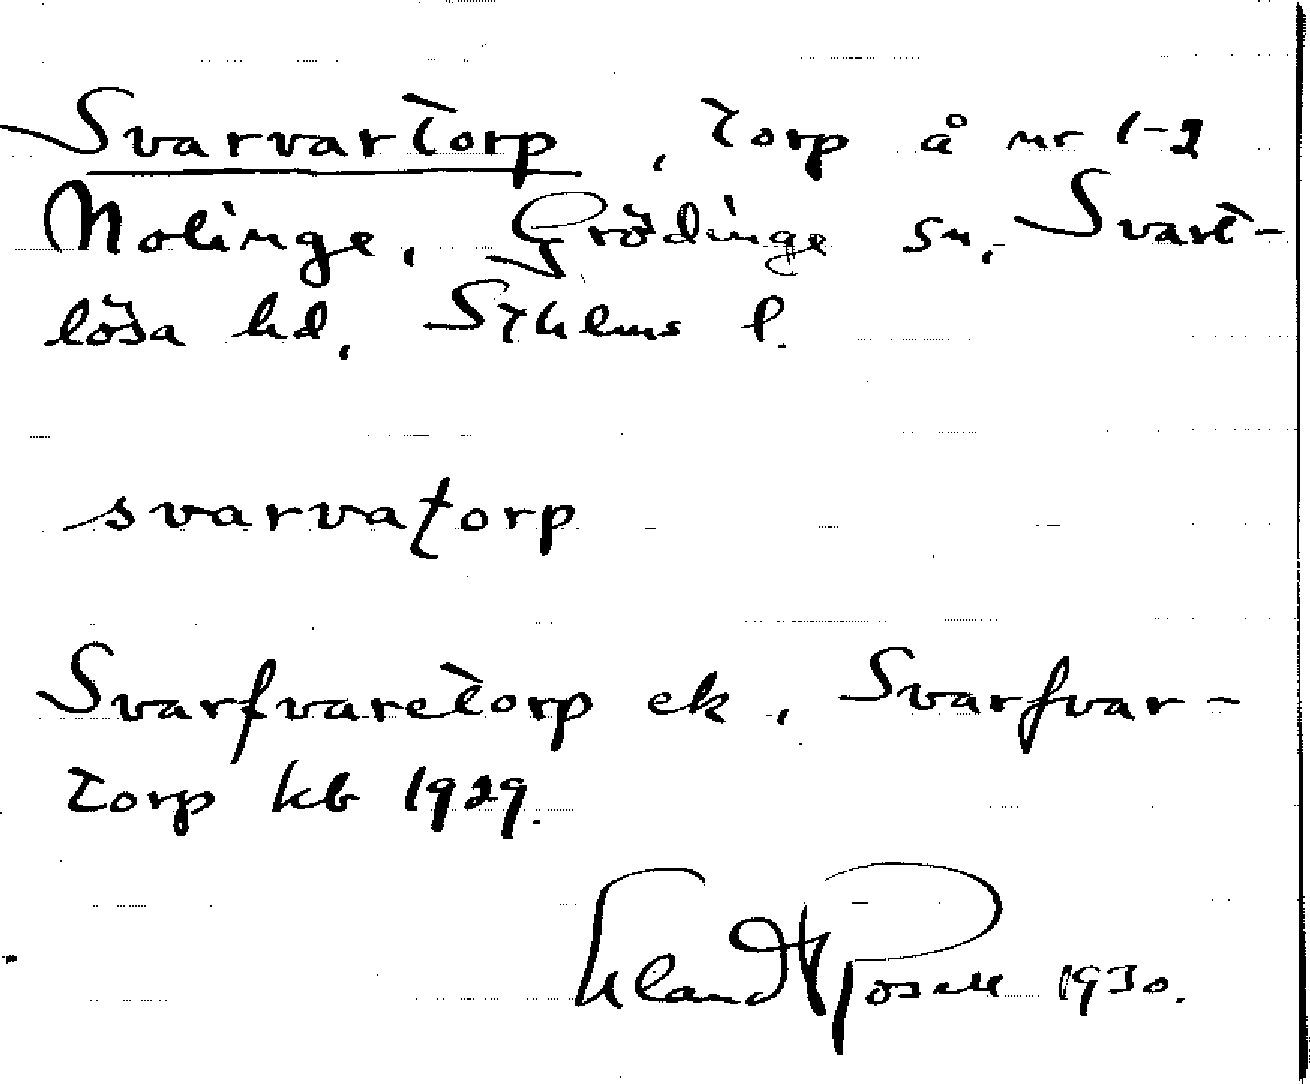 Svarvartorp, torp å nr 1-2
Nolinge, Grödinge sn, Svart-
lösa hd, Sthlms l.
svarvatorp
Svarfvaretorp ek, Svarfvar-
torp kb 1929.
Erland Rosell 1930.